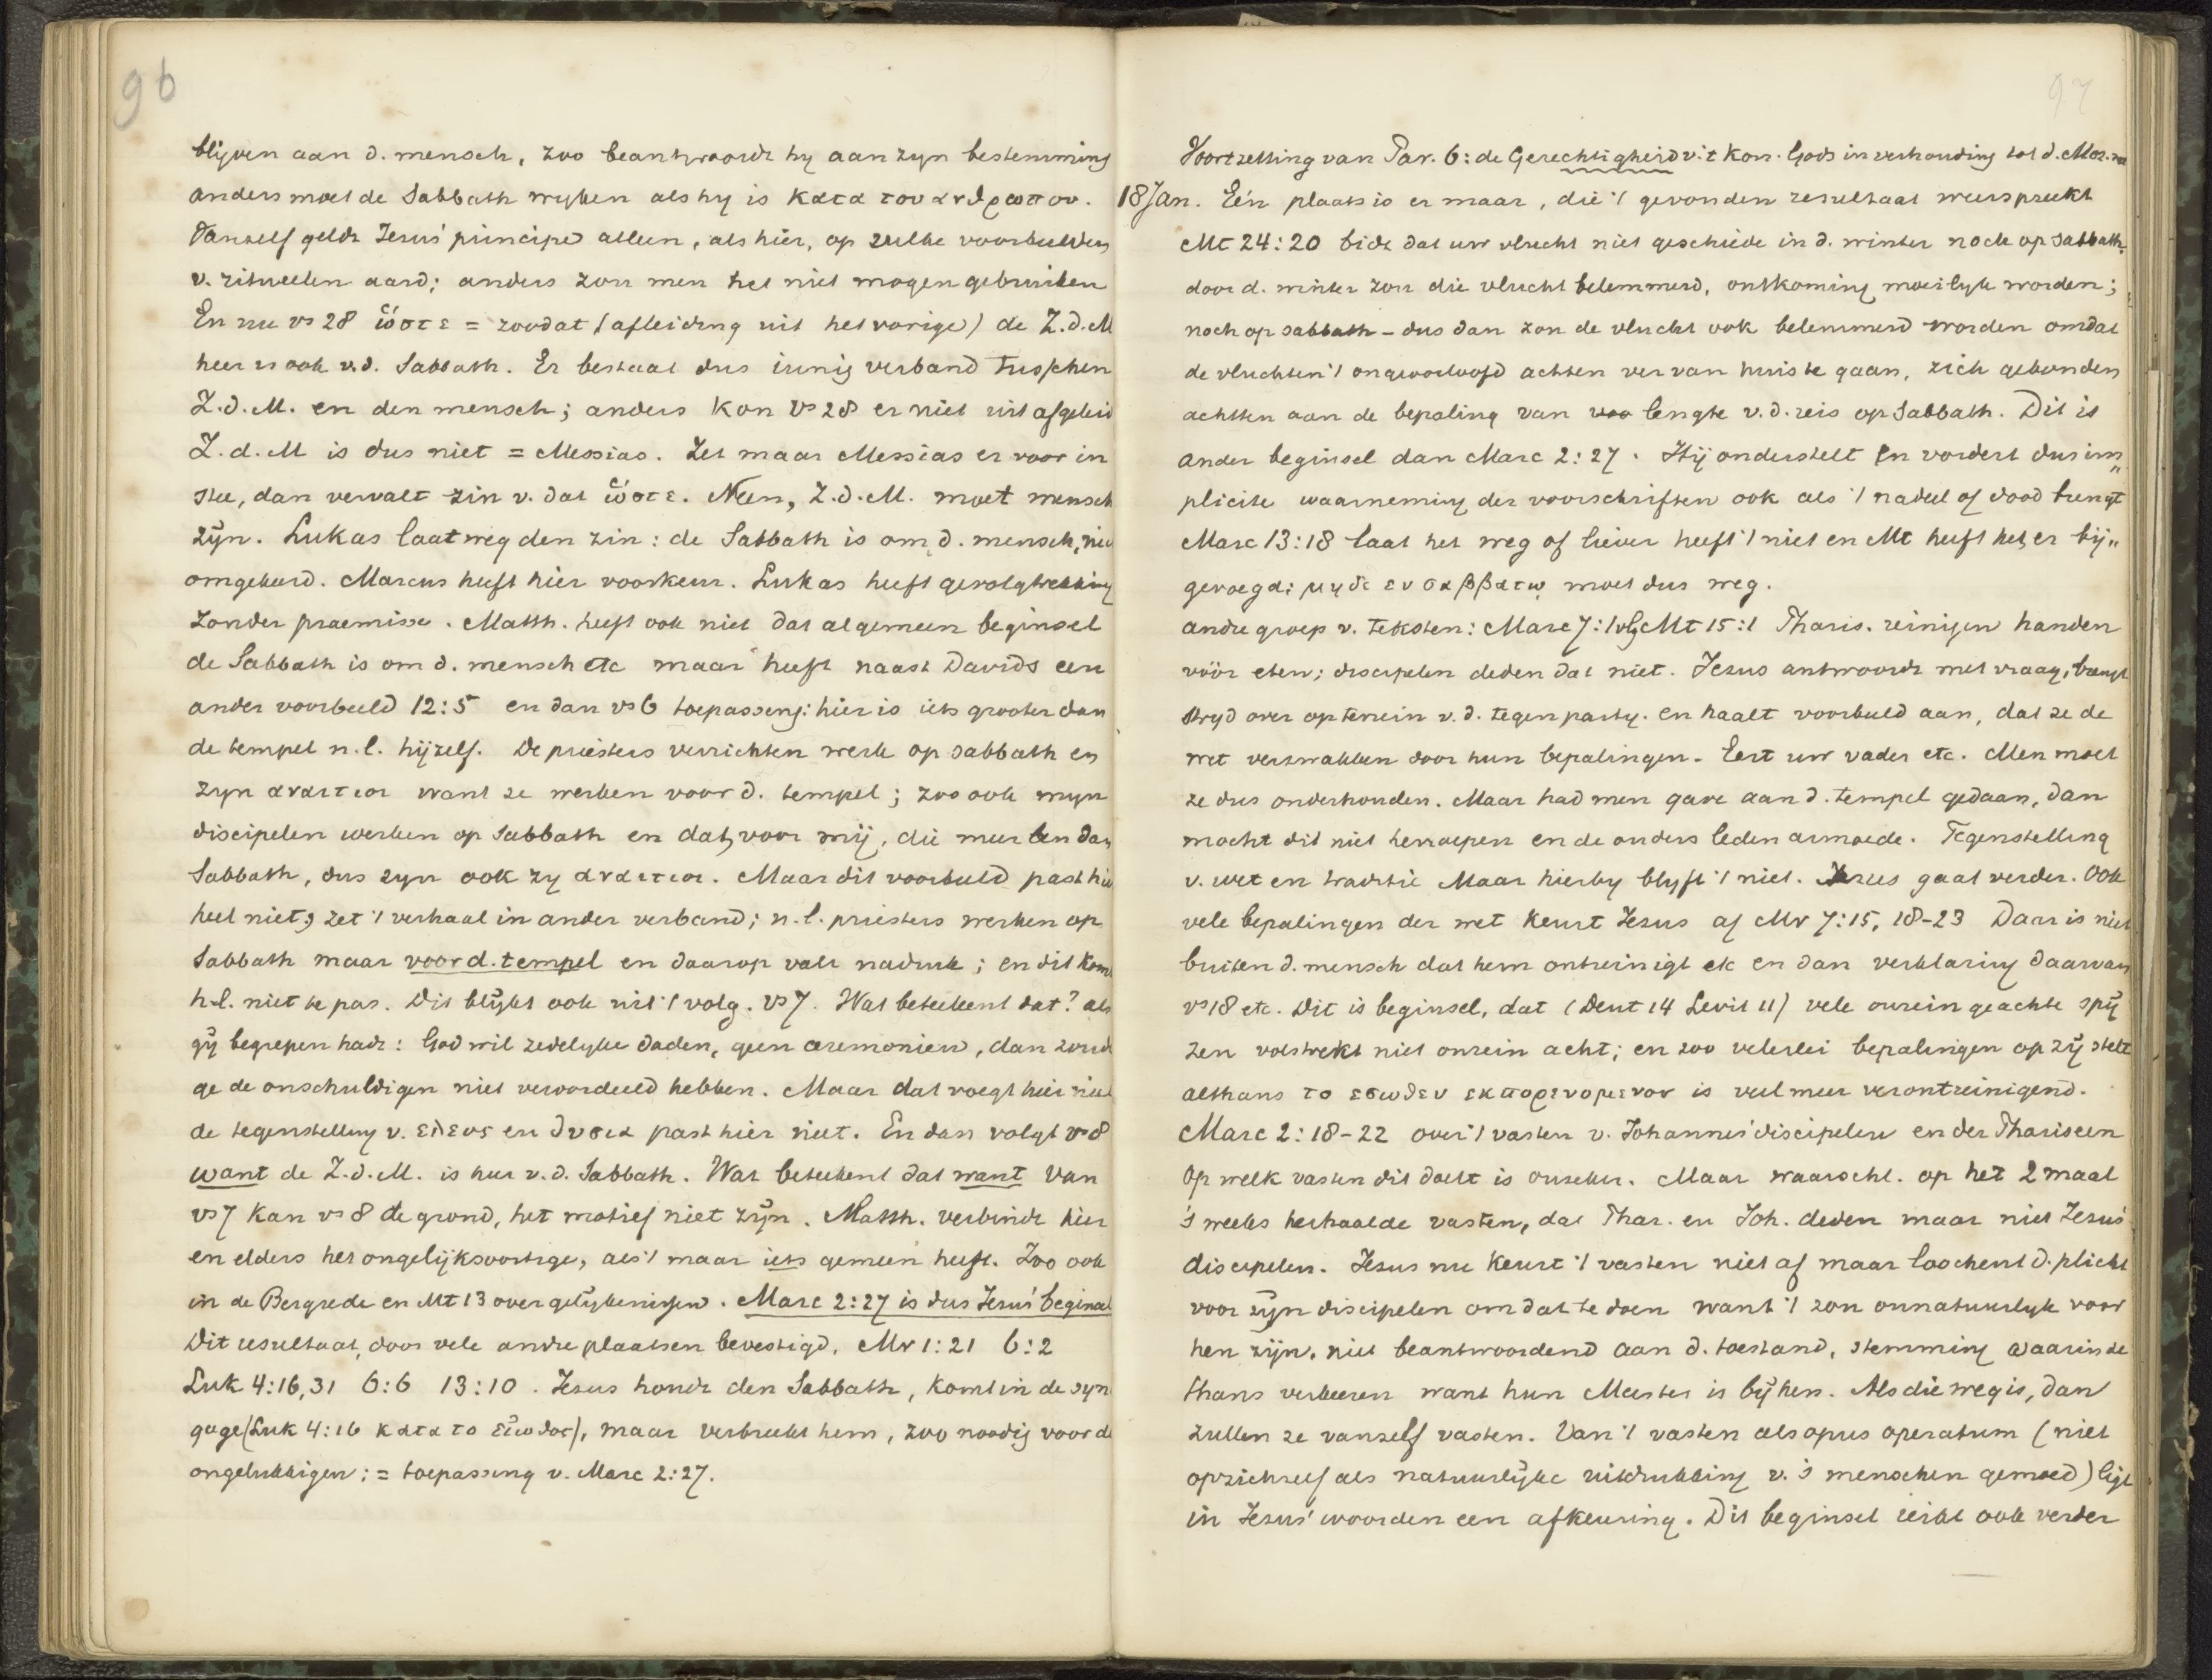 96
blijven aan d. mensch, zoo beantwoordt hy aan zyn bestemming
anders moet de Sabbath wyken als hy is κατα του ανθρωπου.
Vanzelf geldt Jezus' principe alleen, als hier, op zulke voorbeelden
v. ritueelen aard; anders zou men het niet mogen gebruiken
En nu vs 28 ὥστε = zoodat (afleiding uit het vorige) de Z.d.M
heer is ook v.d. Sabbath. Er bestaat dus innig verband tusschen
Z.d.M. en den mensch; anders kon vs 28 er niet uit afgeleid
Z.d.M is dus niet = Messias. Zet maar Messias er voor in
stee, dan vervalt zin v. dat ὥστε. Neen, Z.d.M. moet mensch
zijn. Lukas laat weg den zin: de Sabbath is om d. mensch, nie
omgekeerd. Marcus heeft hier voorkeur. Lukas heeft gevolgtrekking
zonder praemisse. Matth. heeft ook niet dat algemeen beginsel
de Sabbath is om d. mensch etc maar heeft naast Davids een
ander voorbeeld 12:5 en dan vs 6 toepassing: hier is iets grooter dan
de tempel n.l. hijzelf. De priesters verrichten werk op sabbath en
zyn αναιτιοι want ze werken voor d. tempel; zoo ook myn
discipelen werken op Sabbath en dat voor mij, die meer ben dan
Sabbath, dus zyn ook zy αναιτιοι. Maar dit voorbeeld past hie
heel niet, zet 't verhaal in ander verband; n.l. priesters werken op
Sabbath maar voor d. tempel en daarop valt nadruk; en dit komt
h.l. niet te pas. Dit blijkt ook uit 't volg. vs 7. Wat beteekent dat? als
gij begrepen hadt: God wil zedelyke daden, geen ceremoniën, dan zoudt
ge de onschuldigen niet veroordeeld hebben. Maar dat voegt hier niet
de tegenstelling v. ελεος en θυσια past hier niet. En dan volgt vs 8
want de Z.d.M. is heer v.d. Sabbath. Wat beteekent dat want van
vs 7 kan vs 8 de grond, het motief niet zijn. Matth. verbindt hier
en elders het ongelijksoortige, als 't maar iets gemeen heeft. Zoo ook
in de Bergrede en Mt 13 over gelijkenissen. Marc 2:27 is dus Jezus' beginsel
Dit resultaat, door vele andre plaatsen bevestigd. Mr 1:21 6:2
Luk 4:16,31 6:6 13:10. Jezus houdt den Sabbath, komt in de syn
gage (Luk 4:16 κατα το εἰωθος), maar verbreekt hem, zoo noodig voor de
ongelukkigen; = toepassing v. Marc 2:27.
97
Voortzetting van Par. 6: de Gerechtigheid v. 't Kon. Gods in verhouding tot d. Moz.
18 Jan. Eén plaats is er maar, die 't gevonden resultaat weerspreekt
Mt 24:20 bidt dat uw vlucht niet geschiede in d. winter noch op sabbath.
door d. winter zou die vlucht belemmerd, ontkoming moeilyk worden;
noch op sabbath – dus dan zou de vlucht ook belemmerd worden omdat
de vluchten 't ongeoorloofd achten ver van huis te gaan, zich gebonden
achtten aan de bepaling van lengte v.d. reis op Sabbath. Dit is
ander beginsel dan Marc 2:27. Hij onderstelt en vordert dus im„
plicite waarneming der voorschriften ook als 't nadeel of dood brengt
Marc 13:18 laat het weg of liever heeft 't niet en Mt heeft het er bij„
gevoegd; μηδε εν σαββατῳ moet dus weg.
andre groep v. teksten: Marc 7:1 vlg Mt 15:1 Pharis. reinigen handen
vóór eten; discipelen deden dat niet. Jezus antwoordt met vraag, brengt
stryd over op terrein v.d. tegenparty. en haalt voorbeeld aan, dat ze de
wet verzwakken door hun bepalingen. Eert uw vader etc. Men moet
ze dus onderhouden. Maar had men gave aan d. tempel gedaan, dan
mocht dit niet herroepen en de ouders leden armoede. Tegenstelling
v. wet en traditie Maar hierby blyft 't niet. Jezus gaat verder. Ook
vele bepalingen der wet keurt Jezus af Mr 7:15, 18-23 Daar is niet
buiten d. mensch dat hem ontreinigt etc en dan verklaring daarvan
vs 18 etc. Dit is beginsel, dat (Deut 14 Levit 11) vele onrein geachte spij
zen volstrekt niet onrein acht; en zoo velerlei bepalingen op zij stelt
althans το εσωθεν εκπορευομενον is veel meer verontreinigend.
Marc 2:18-22 over 't vasten v. Johannes' discipelen en der Phariseen
Op welk vasten dit doelt is onzeker. Maar waarschl. op het 2 maal
's weeks herhaalde vasten, dat Phar. en Joh. deden maar niet Jezus'
discipelen. Jezus nu keurt 't vasten niet af maar loochent d. plicht
voor zijn discipelen om dat te doen want 't zou onnatuurlyk voor
hen zijn, niet beantwoordend aan d. toestand, stemming waarin ze
thans verkeeren want hun Meester is bij hen. Als die weg is, dan
zullen ze vanzelf vasten. Van 't vasten als opus operatum (niet
opzichzelf als natuurlijke uitdrukking v. 's menschen gemoed) ligt
in Jezus' woorden een afkeuring. Dit beginsel reikt ook verder